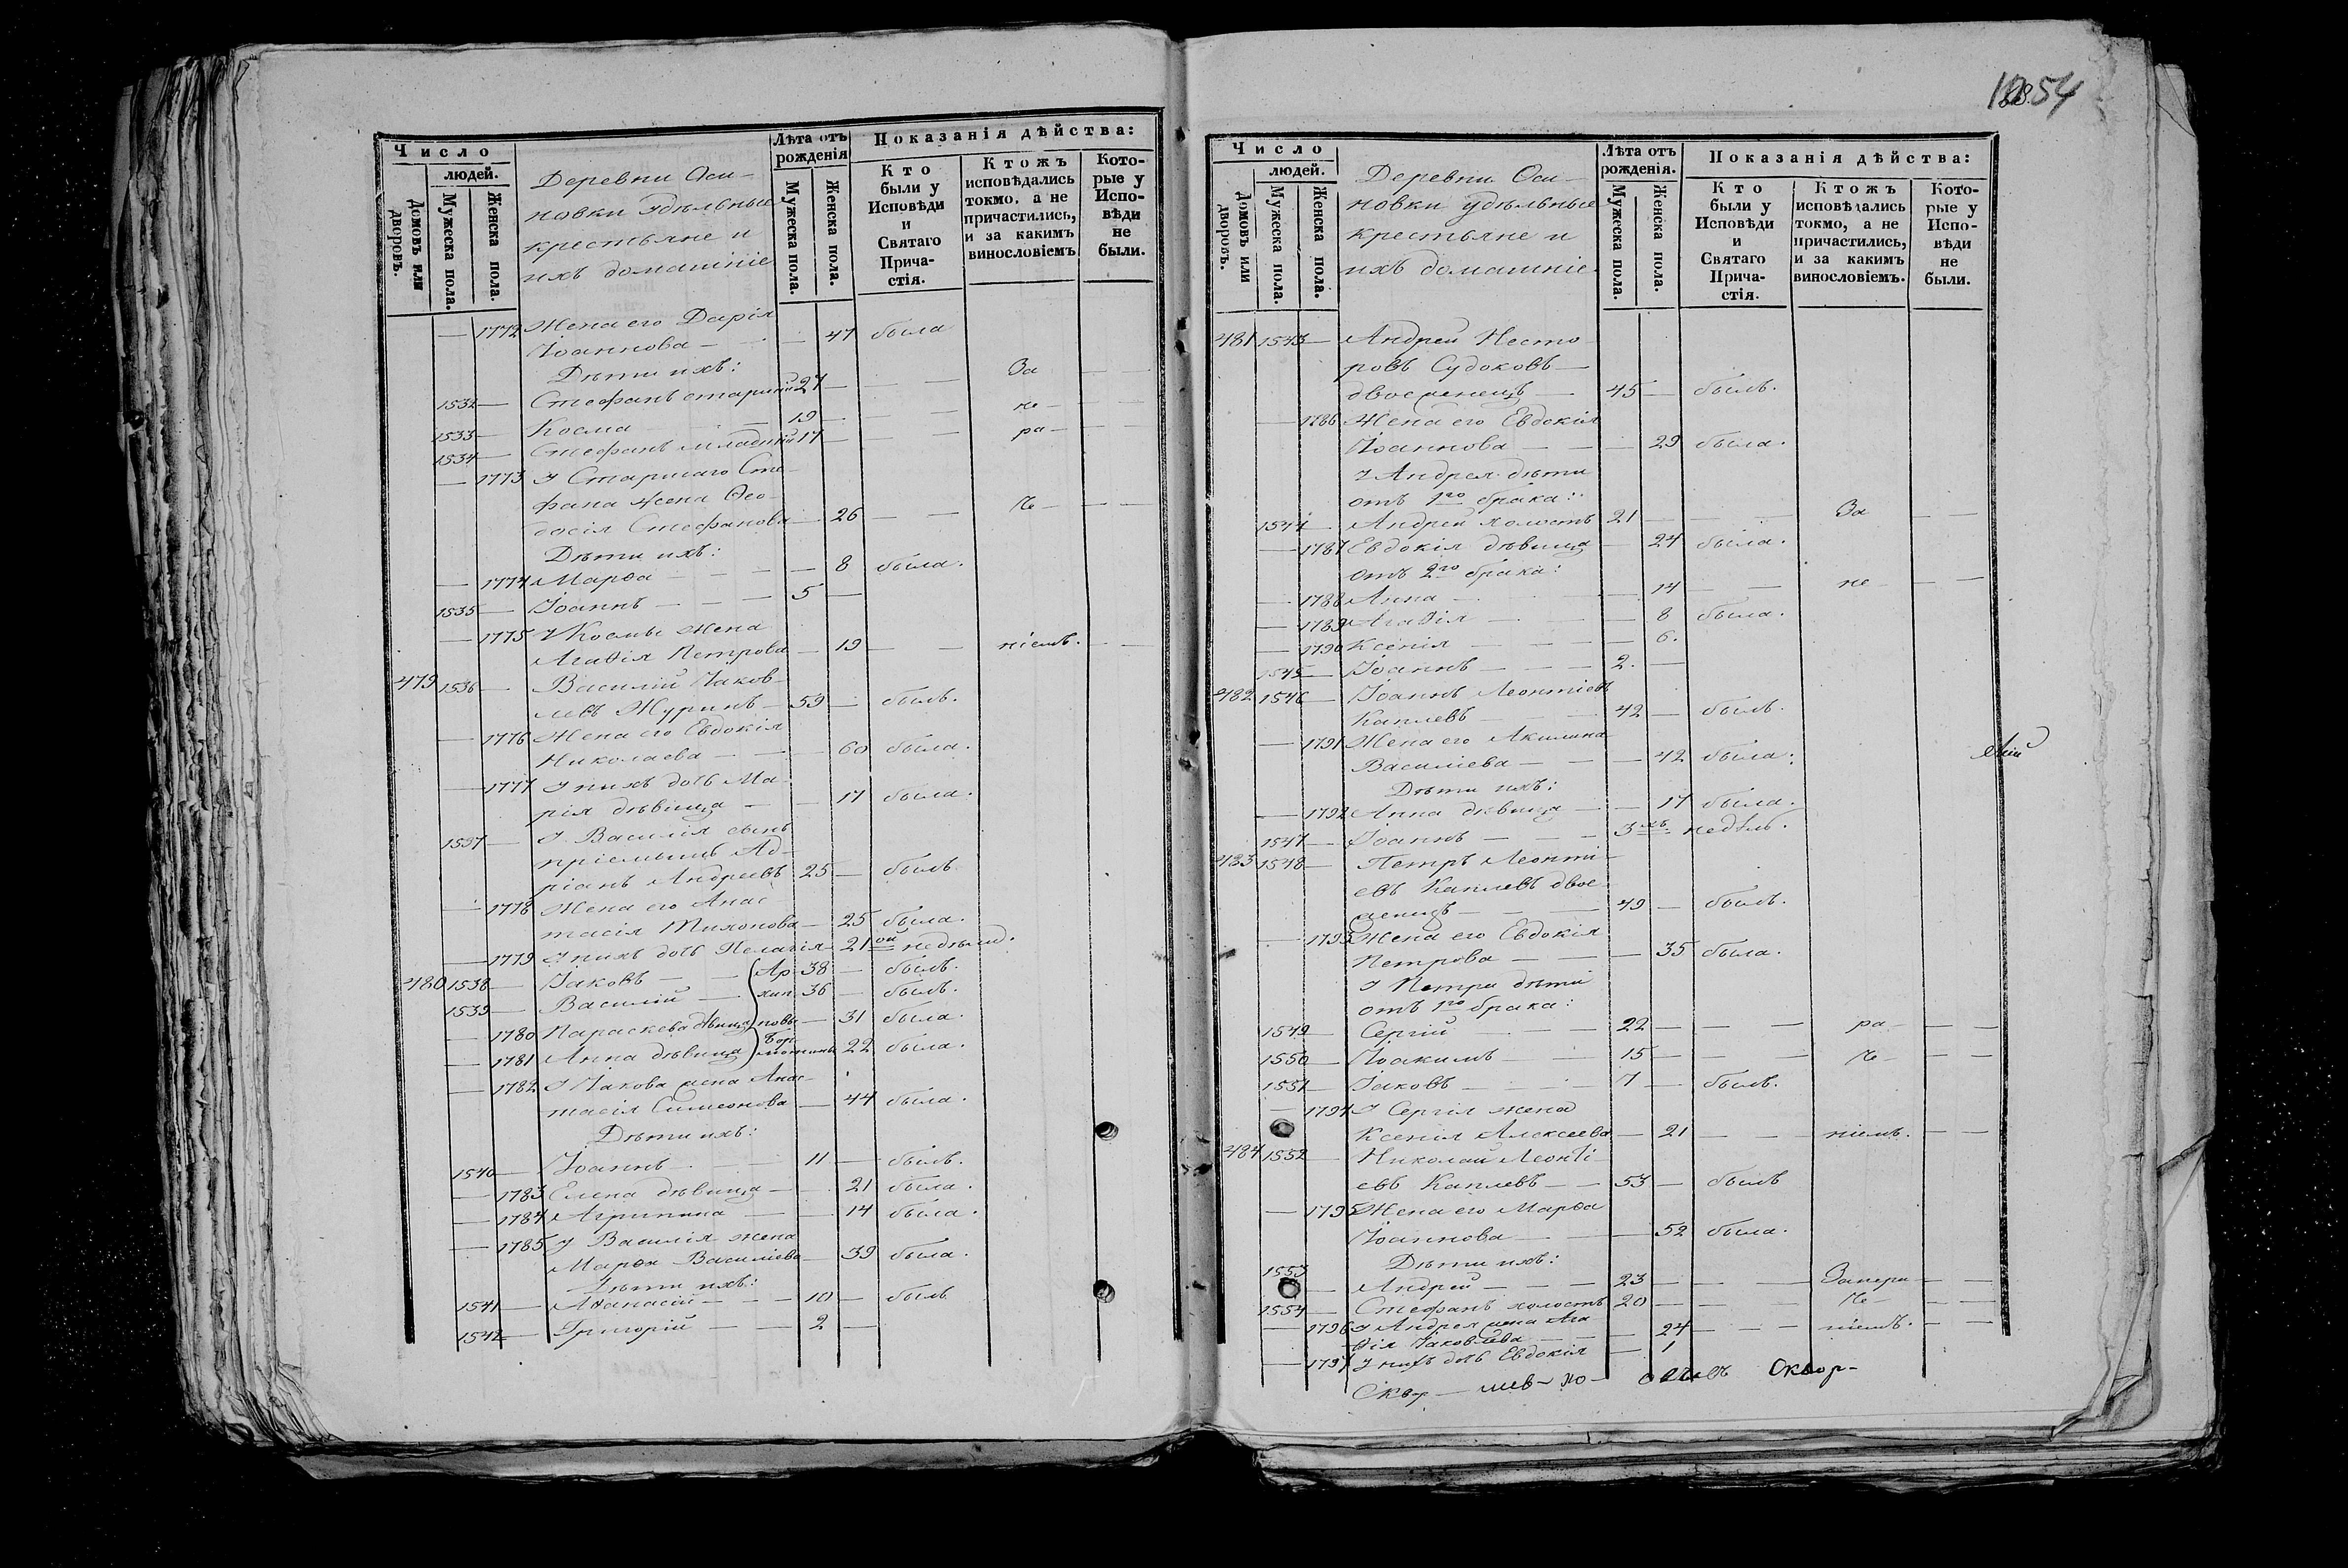 1054
Число
людей.
Домовъ или дворовъ.
Мужеска пола.
Женска пола.
Деревни Оси-
новки удѣльные
крестьяне и
ихъ домашніе
Лѣта отъ рожденія
Мужеска пола.
Женска пола.
Показанія дѣйства:
Кто были у Исповѣди и Святаго Прича-стія.
Ктожъ исповѣдались токмо, а не причастились, и за какимъ винословіемъ
Кото-рые у Испо-вѣди не были.
— 1772 Жена его Дарія
Іоаннова — — 47 была
Дѣти ихъ:
1532 — Стефанъ старшій 27 — — — За — —
1533 — Косма — 19 — — — не — — —
1534 — Стефанъ младшій 17 — — ра — — —
— 1773 У Старшаго Сте-
фана жена Ѳео-
досія Стефанова — 26 — — че — — —
Дѣти ихъ:
— 1774 Марѳа — — — — 8 была.
1535 — Іоаннъ — — — 5 —
— 1775 У Космы жена
Агаѳія Петрова — 19 — — ніемъ. — —
479 1536 — Василій Іаков-
левъ Журинъ — 59 — былъ.
— 1776 Жена его Евдокія
Николаева — — — 60 была.
— 1777 У нихъ дочь Ма-
рія дѣвица — — 17 была.
1537 — У Василія сынъ
пріемышъ Ад-
ріанъ Андреевъ 25 — былъ
— 1778 Жена его Анас-
тасія Тихонова — 25 была.
— 1779 У нихъ дочь Пелагія — 21ой недѣли.
480 1538 — Іаковъ — — Ар 38 — былъ.
1539 — Василій — хип 36 — былъ.
— 1780 Параскева дѣвица повы — 31 была.
— 1781 Анна дѣвица — 22 была.
— 1782 У Іакова жена Анас-
тасія Симеонова — 44 была.
Дѣти ихъ:
1540 — Іоаннъ — — 11 — былъ.
— 1783 Елена дѣвица — — 21 была.
— 1784 Агрипина — — 14 была.
— 1785 У Василія жена
Марѳа Василіева — 39 была.
Дѣти ихъ:
1541 — Аѳанасій — — — 10 — былъ
1542 — Григорій — — — 2 —
Число
людей.
Домовъ или дворовъ.
Мужеска пола.
Женска пола.
Деревни Оси-
новки удѣльные
крестьяне и
ихъ домашніе
Лѣта отъ рожденія.
Мужеска пола.
Женска пола.
Показанія дѣйства:
Кто были у Исповѣди и Святаго Прича-стія.
Ктожъ исповѣдались токмо, а не причастились, и за какимъ винословіемъ.
Кото-рые у Испо-вѣди не были.
481 1543 — Андрей Несто-
ровъ Судоковъ —
двоеженецъ — 45 — былъ.
— 1786 Жена его Евдокія
Іоаннова — — — 29 была.
У Андрея дѣти
отъ 1го брака:
1544 — Андрей холостъ 21 — — — За — —
— 1787 Евдокія дѣвица — 24 была.
отъ 2го брака:
— 1788 Анна — — — 14 — — не — —
— 1789 Агаѳія — — — 8 была.
— 1790 Ксенія — — — 6.
1545 — Іоаннъ — — — 2. —
482 1546 — Іоаннъ Леонтіевъ
Каплевъ — — 42 — былъ.
— 1791 Жена его Акилина
Василіева — — — 42 была.
Дѣти ихъ:
— 1792 Анна дѣвица — — 17 была.
1547 — Іоаннъ — — — 3хъ недѣль.
483 1548 — Петръ Леонті-
евъ Каплевъ двое-
женецъ — — 49 — былъ.
— 1793 Жена его Евдокія
Петрова — — — 35 была.
У Петра дѣти
отъ 1го брака:
1549 — Сергій — — — 22 — — — ра — —
1550 — Іоакимъ — — 15 — — че — —
1551 — Іаковъ — — — 7 — былъ.
— 1794 У Сергія жена
Ксенія Алексеева — 21 — — — ніемъ. — —
484 1552 — Николай Леонті-
евъ Каплевъ — — 53 — былъ
— 1795 Жена его Марѳа
Іоаннова — — — 52 была.
Дѣти ихъ:
1553 — Андрей — — — 23 — — — Запера — —
1554 — Стефанъ холостъ 20 — — — че — — —
— 1796 У Андрея жена Ага
ѳія Іаковлева — — — 24 — — — ніемъ. — —
— 1797 У нихъ дочь Евдокія — 1